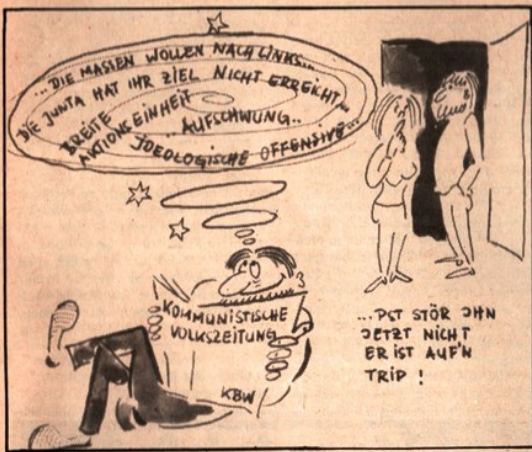 ...DIE MASSEN WOLLEN NACH LINKS...
DIE JUNTA HAT IHR ZIEL NICHT ERREICHT...
BREITE
AKTIONSEINHEIT
..AUFSCHWUNG..
IDEOLOGISCHE OFFENSIVE...
KOMMUNISTISCHE
VOLKSZEITUNG
KBW
...PST STÖR IHN
JETZT NICHT
ER IST AUF'N
TRIP !